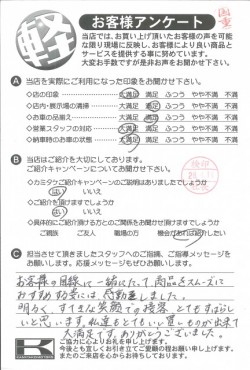 軽
お客様アンケート
当店では、お買い上げ頂いたお客様の声を可能
な限り現場に反映し、お客様により良い商品と
サービスを提供する事に努めています。
大変お手数ですが是非お声をお聞かせ下さい。
A 当店を実際にご利用になった印象をお聞かせ下さい。
◇店の印象 大満足 満足 ふつう やや不満 不満
◇店内・展示場の清掃 大満足 満足 ふつう やや不満 不満
◇お車の品揃え 大満足 満足 ふつう やや不満 不満
◇営業スタッフの対応 大満足 満足 ふつう やや不満 不満
◇納車時のお車の状態 大満足 満足 ふつう やや不満 不満
B 当店はご紹介を大切にしております。
ご紹介キャンペーンについてお聞かせ下さい。
◇カミタケご紹介キャンペーンのご説明はありましたでしょうか
はい いいえ
◇ご紹介キャンペーンをご検討頂けますでしょうか
はい いいえ
◇具体的にご紹介頂ける方とのご関係をお聞かせ頂けますでしょうか
ご親族 ご友人 職場の方 機会があれば紹介したい
C 担当させて頂きましたスタッフへのご指摘、ご指導メッセージを
お願いします。応援メッセージもぜひお願いします。
お客様の目線に一緒にたって、商品をスムーズに
おすすめ 効率には 感動致しました。
明るく、すてきな笑顔での接客、とてもすばらし
いと思います。私達もとてもいい買いものが出来て
大満足です。ありがとうございました。
K
ご協力に心よりお礼を申し上げます。
今後とも宜しくお引き立てご愛顧の程お願い申し上げます。
またのご来店を心からお待ちしております。